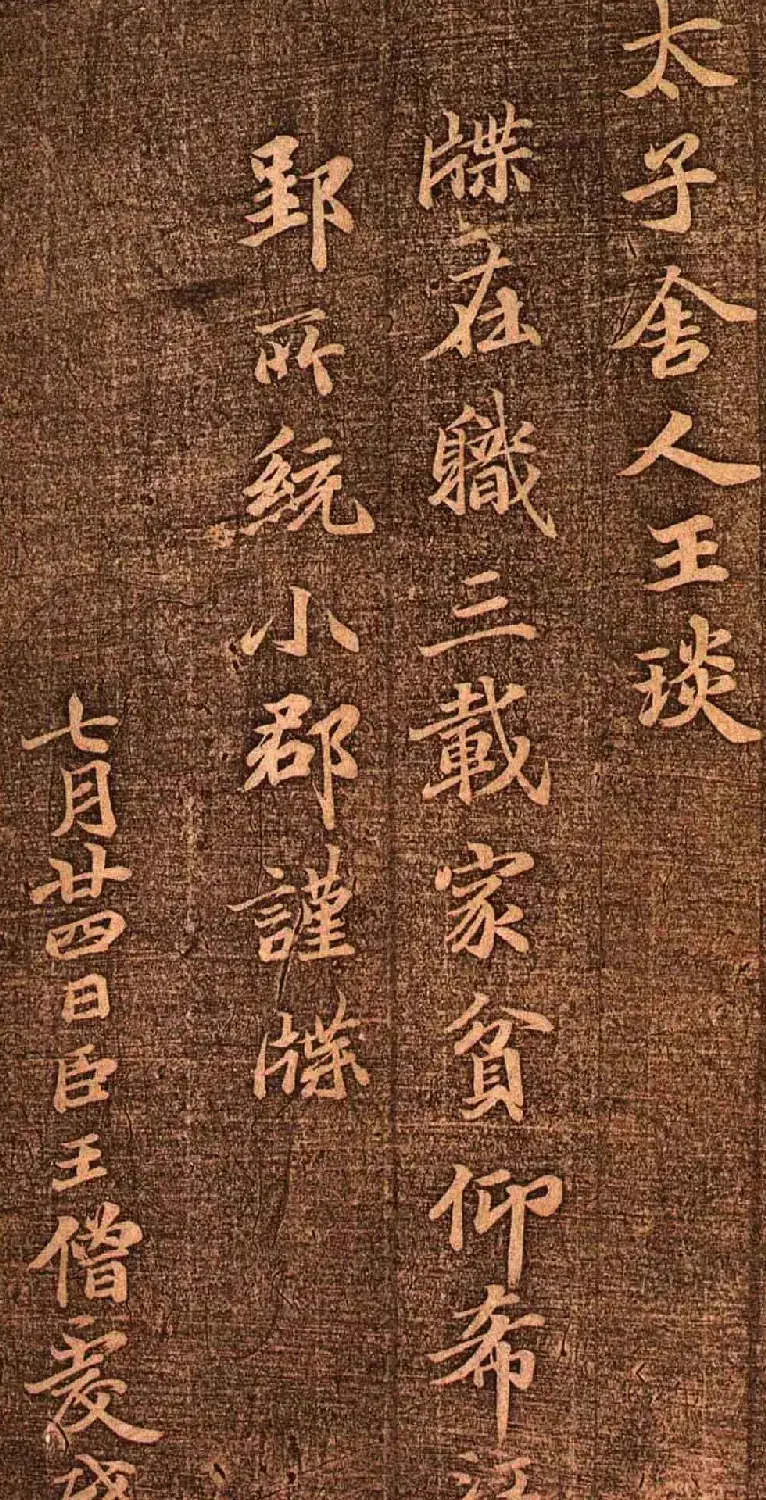 太子舍人王琰
牒在職三載家貧仰希江
郢所統小郡謹牒
七月廿四日臣王僧虔